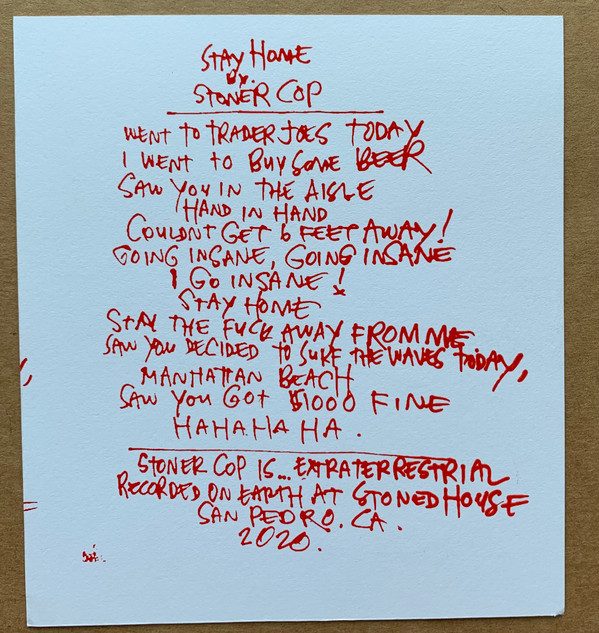 STAY HOME
BY.
STONER COP
WENT TO TRADER JOES TODAY
I WENT TO BUY SOME BEER
SAW YOU IN THE AISLE
HAND IN HAND
COULDNT GET 6 FEET AWAY!
GOING INSANE, GOING INSANE
I GO INSANE!
STAY HOME
STAY THE FUCK AWAY FROM ME
SAW YOU DECIDED TO SURF THE WAVES TODAY,
MANHATTAN BEACH
SAW YOU GOT $1000 FINE
HAHAHA HA.
STONER COP IS... EXTRATERRESTRIAL
RECORDED ON EARTH AT STONED HOUSE
SAN PEDRO. CA.
2020.